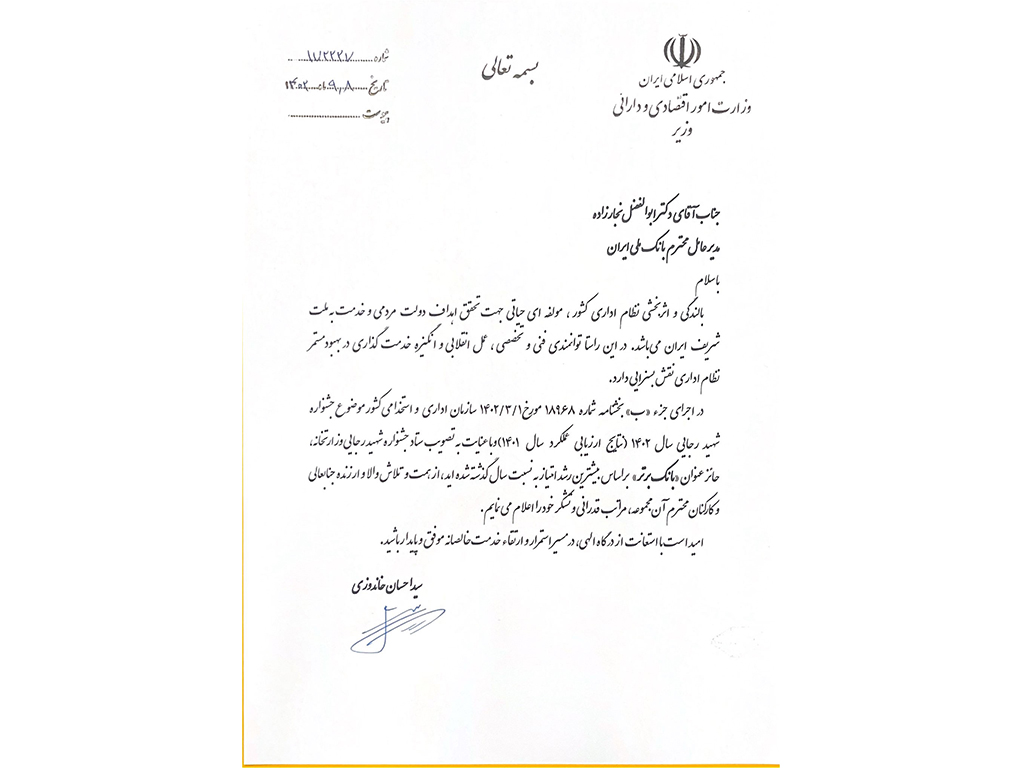 جمهوری اسلامی ایران
وزارت امور اقتصادی و دارائی
وزیر
بسمه تعالی
شماره
تاریخ ۱۴۰۲
پیوست
جناب آقای دکتر ابوالفضل نجارزاده
مدیرعامل محترم بانک ملی ایران
باسلام
بالندگی و اثربخشی نظام اداری کشور ، مولفه ای حیاتی جهت تحقق اهداف دولت مردمی و خدمت به ملت
شریف ایران می‌باشد. در این راستا توانمندی فنی و تخصصی ، عمل انقلابی و انگیزه خدمت گذاری در بهبود مستمر
نظام اداری نقش بسزایی دارد.
در اجرای جزء «ب» بخشنامه شماره ۱۸۹۶۸ مورخ ۱۴۰۲/۳/۱ سازمان اداری و استخدامی کشور موضوع جشنواره
شهید رجایی سال ۱۴۰۲ (نتایج ارزیابی عملکرد سال ۱۴۰۱) و با عنایت به تصویب ستاد جشنواره شهید رجایی وزارتخانه،
حائز عنوان «بانک برتر» بر اساس بیشترین رشد امتیاز به نسبت سال گذشته شده اید، از همت و تلاش والا و ارزنده جنابعالی
و کارکنان محترم آن مجموعه، مراتب قدردانی و تشکر خود را اعلام می نمایم.
امید است با استعانت از درگاه الهی، در مسیر استمرار و ارتقاء خدمت خالصانه موفق و پایدار باشید.
سید احسان خاندوزی